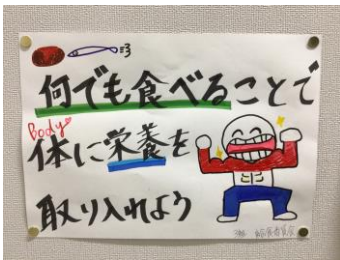 何でも食べることで
Body
体に栄養を
取り入れよう
給食委員会